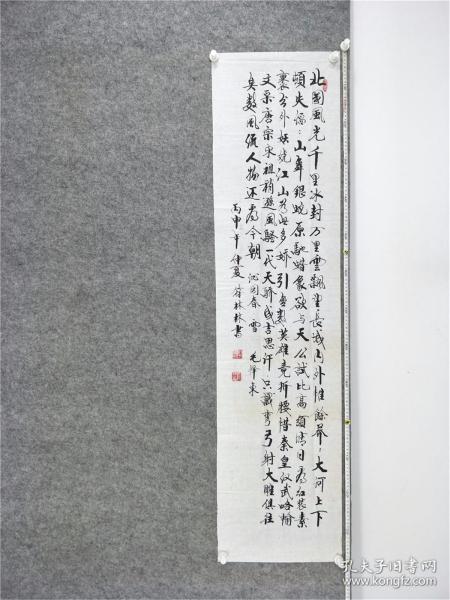 北國風光千里冰封万里雲飄望長城内外惟餘莽：大河上下
頓失滔：山舞銀蛇原馳蜡象欲与天公試比高須晴日看红装素
裹分外妖娆江山如此多娇引無数英雄竞折腰惜秦皇汉武略输
文采唐宗宋祖稍遜風騷一代天骄成吉思汗只識弯弓射大雕俱往
矣数風流人物还看今朝 沁园春 雪 毛泽东
丙申年仲夏 林林書
孔夫子旧书网
www.kongfz.com